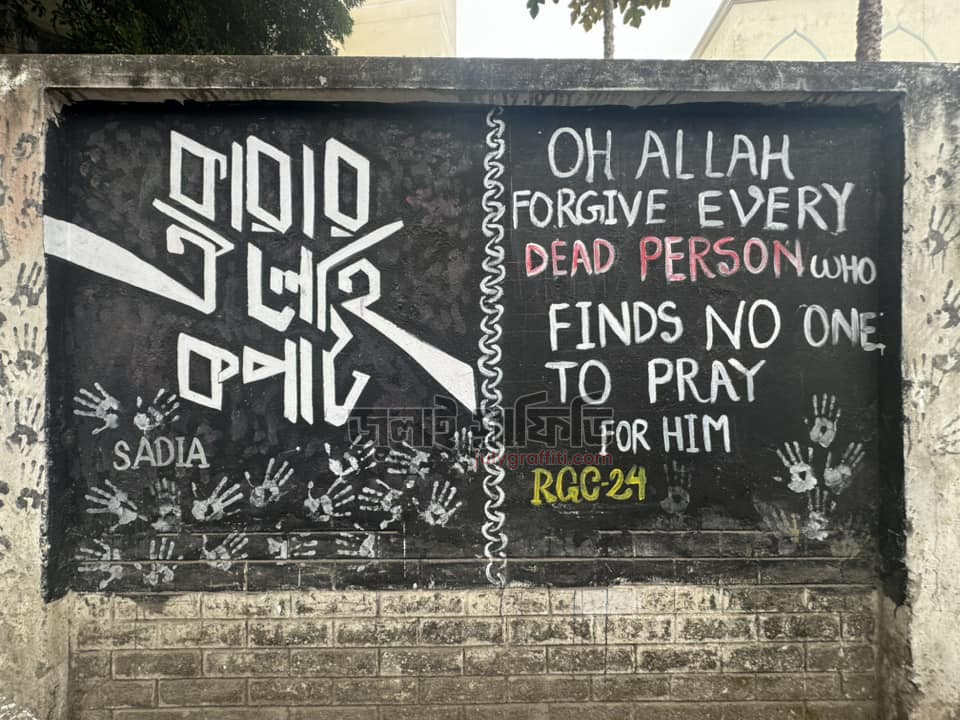 কারার
ঐ লৌহ
কপাট
SADIA
OH ALLAH
FORGIVE EVERY
DEAD PERSON WHO
FINDS NO ONE
TO PRAY
FOR HIM
RGC-24
জুলাই গ্রাফিতি
julygraffiti.com